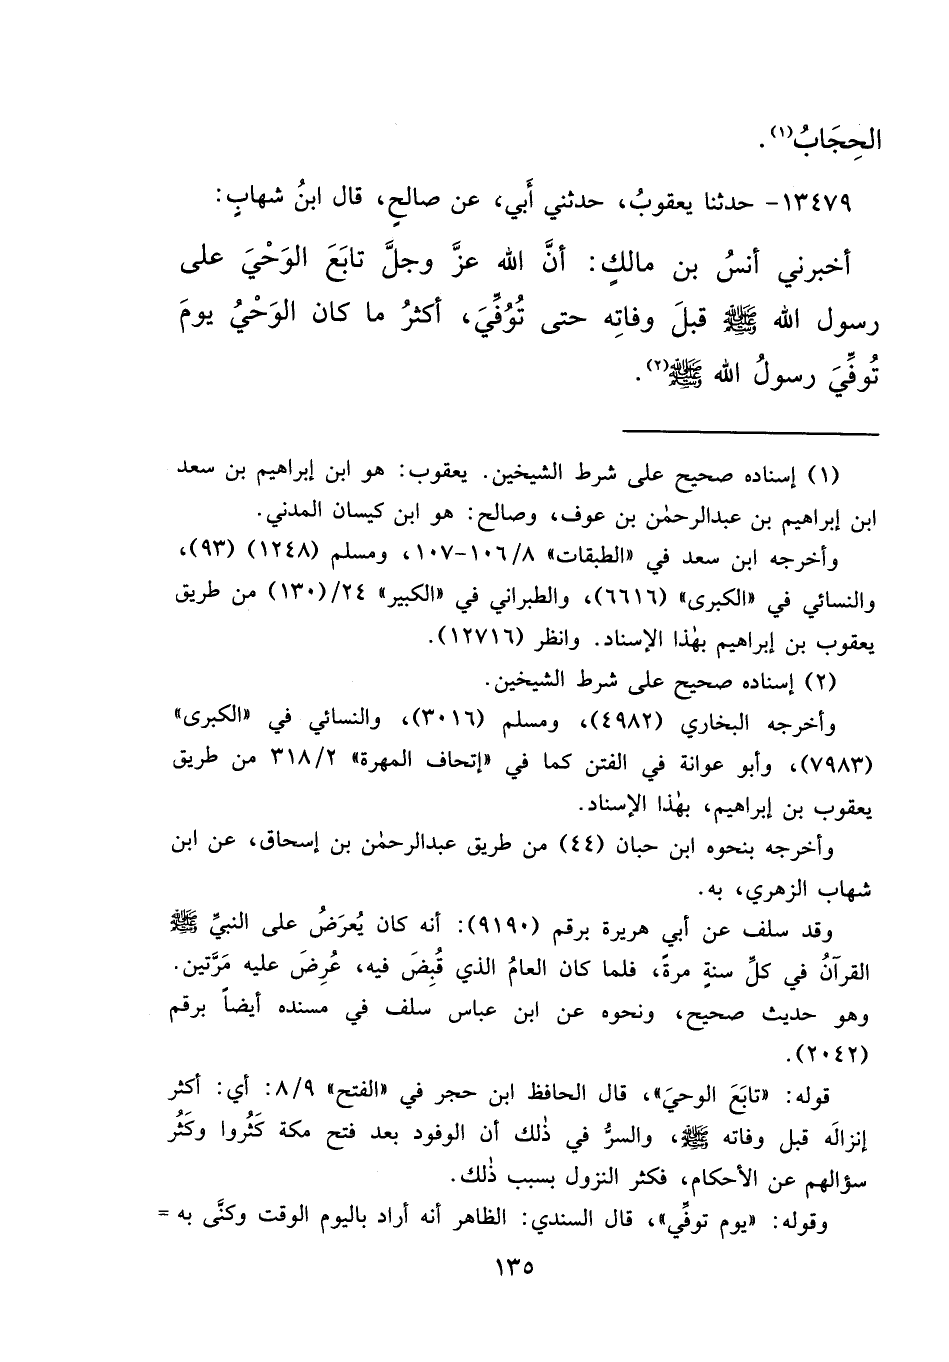 الحِجَابُ(١).
١٣٤٧٩- حدثنا يعقوبُ، حدثني أَبي، عن صالحٍ، قال ابنُ شهابٍ:
أخبرني أنسُ بن مالكٍ: أنَّ الله عزَّ وجلَّ تابَعَ الوَحْيَ على
رسول الله ﷺ قبلَ وفاتِه حتى تُوُفِّيَ، أكثرُ ما كان الوَحْيُ يومَ
تُوفِّيَ رسولُ الله ﷺ(٢).
(١) إسناده صحيح على شرط الشيخين. يعقوب: هو ابن إبراهيم بن سعد
ابن إبراهيم بن عبدالرحمٰن بن عوف، وصالح: هو ابن كيسان المدني.
وأخرجه ابن سعد في «الطبقات» ١٠٦/٨-١٠٧، ومسلم (١٢٤٨) (٩٣)،
والنسائي في «الكبرى» (٦٦١٦)، والطبراني في «الكبير» ٢٤/(١٣٠) من طريق
يعقوب بن إبراهيم بهٰذا الإسناد. وانظر (١٢٧١٦).
(٢) إسناده صحيح على شرط الشيخين.
وأخرجه البخاري (٤٩٨٢)، ومسلم (٣٠١٦)، والنسائي في «الكبرى»
(٧٩٨٣)، وأبو عوانة في الفتن كما في «إتحاف المهرة» ٣١٨/٢ من طريق
يعقوب بن إبراهيم، بهٰذا الإسناد.
وأخرجه بنحوه ابن حبان (٤٤) من طريق عبدالرحمٰن بن إسحاق، عن ابن
شهاب الزهري، به.
وقد سلف عن أبي هريرة برقم (٩١٩٠): أنه كان يُعرَضُ على النبيِّ ﷺ
القرآنُ في كلِّ سنةٍ مرةً، فلما كان العامُ الذي قُبِضَ فيه، عُرِضَ عليه مَرَّتين.
وهو حديث صحيح، ونحوه عن ابن عباس سلف في مسنده أيضاً برقم
(٢٠٤٢).
قوله: «تابَعَ الوحيَ»، قال الحافظ ابن حجر في «الفتح» ٨/٩: أي: أكثر
إنزالَه قبل وفاته ﷺ، والسرُّ في ذٰلك أن الوفود بعد فتح مكة كَثُروا وكَثُر
سؤالهم عن الأحكام، فكثر النزول بسبب ذٰلك.
وقوله: «يوم توفِّي»، قال السندي: الظاهر أنه أراد باليوم الوقت وكنَّى به =
١٣٥